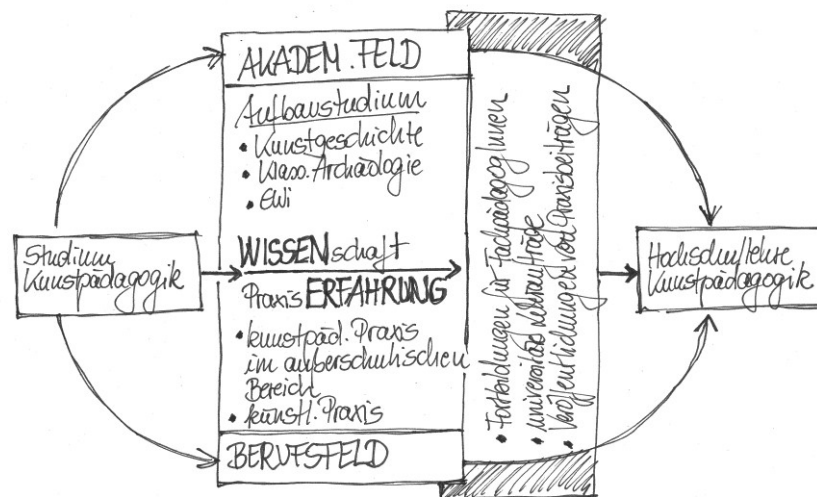 AKADEM. FELD
Aufbaustudium
• Kunstgeschichte
• Klass. Archäologie
• EWi
Studium
Kunstpädagogik
WISSENschaft
Praxis ERFAHRUNG
• kunstpäd. Praxis
im außerschulischen
Bereich
• künstl. Praxis
BERUFSFELD
• Fortbildungen für FachpädagogInnen
• universitäre Lehraufträge
• Veröffentlichungen von Praxisbeiträgen
Hochschullehre
Kunstpädagogik